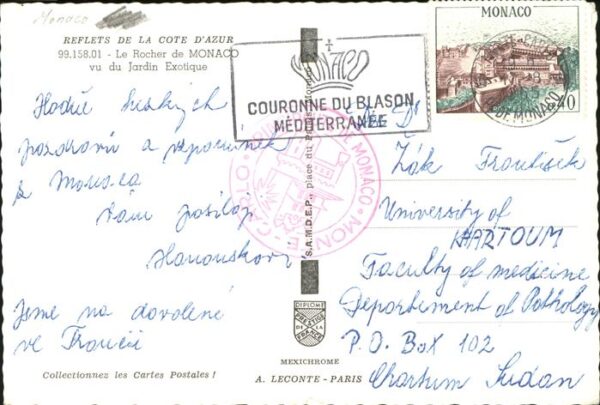 Monaco
REFLETS DE LA COTE D'AZUR
99.158.01 - Le Rocher de MONACO
vu du Jardin Exotique
MONACO
COURONNE DU BLASON
MÉDITERRANÉE
MONACO
0,40
Hodně hezkých
pozdravů a vzpomínek
z Monaca
Vám posílají
Hanouskovi
Jsme na dovolené
ve Francii
Žák František
University of
KHARTOUM
Faculty of medicine
Departement of Pathology
P.O. Box 102
Chartum Sudan
MONTE-CARLO
MONACO
S.A.M.D.E.P., place du
DIPLOME
PRESTIGE
DE LA
FRANCE
MEXICHROME
Collectionnez les Cartes Postales !
A. LECONTE - PARIS